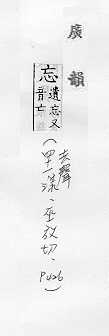 廣韻
忘
遺忘又
音亡
(去聲
四一漾、巫放切、
P426)